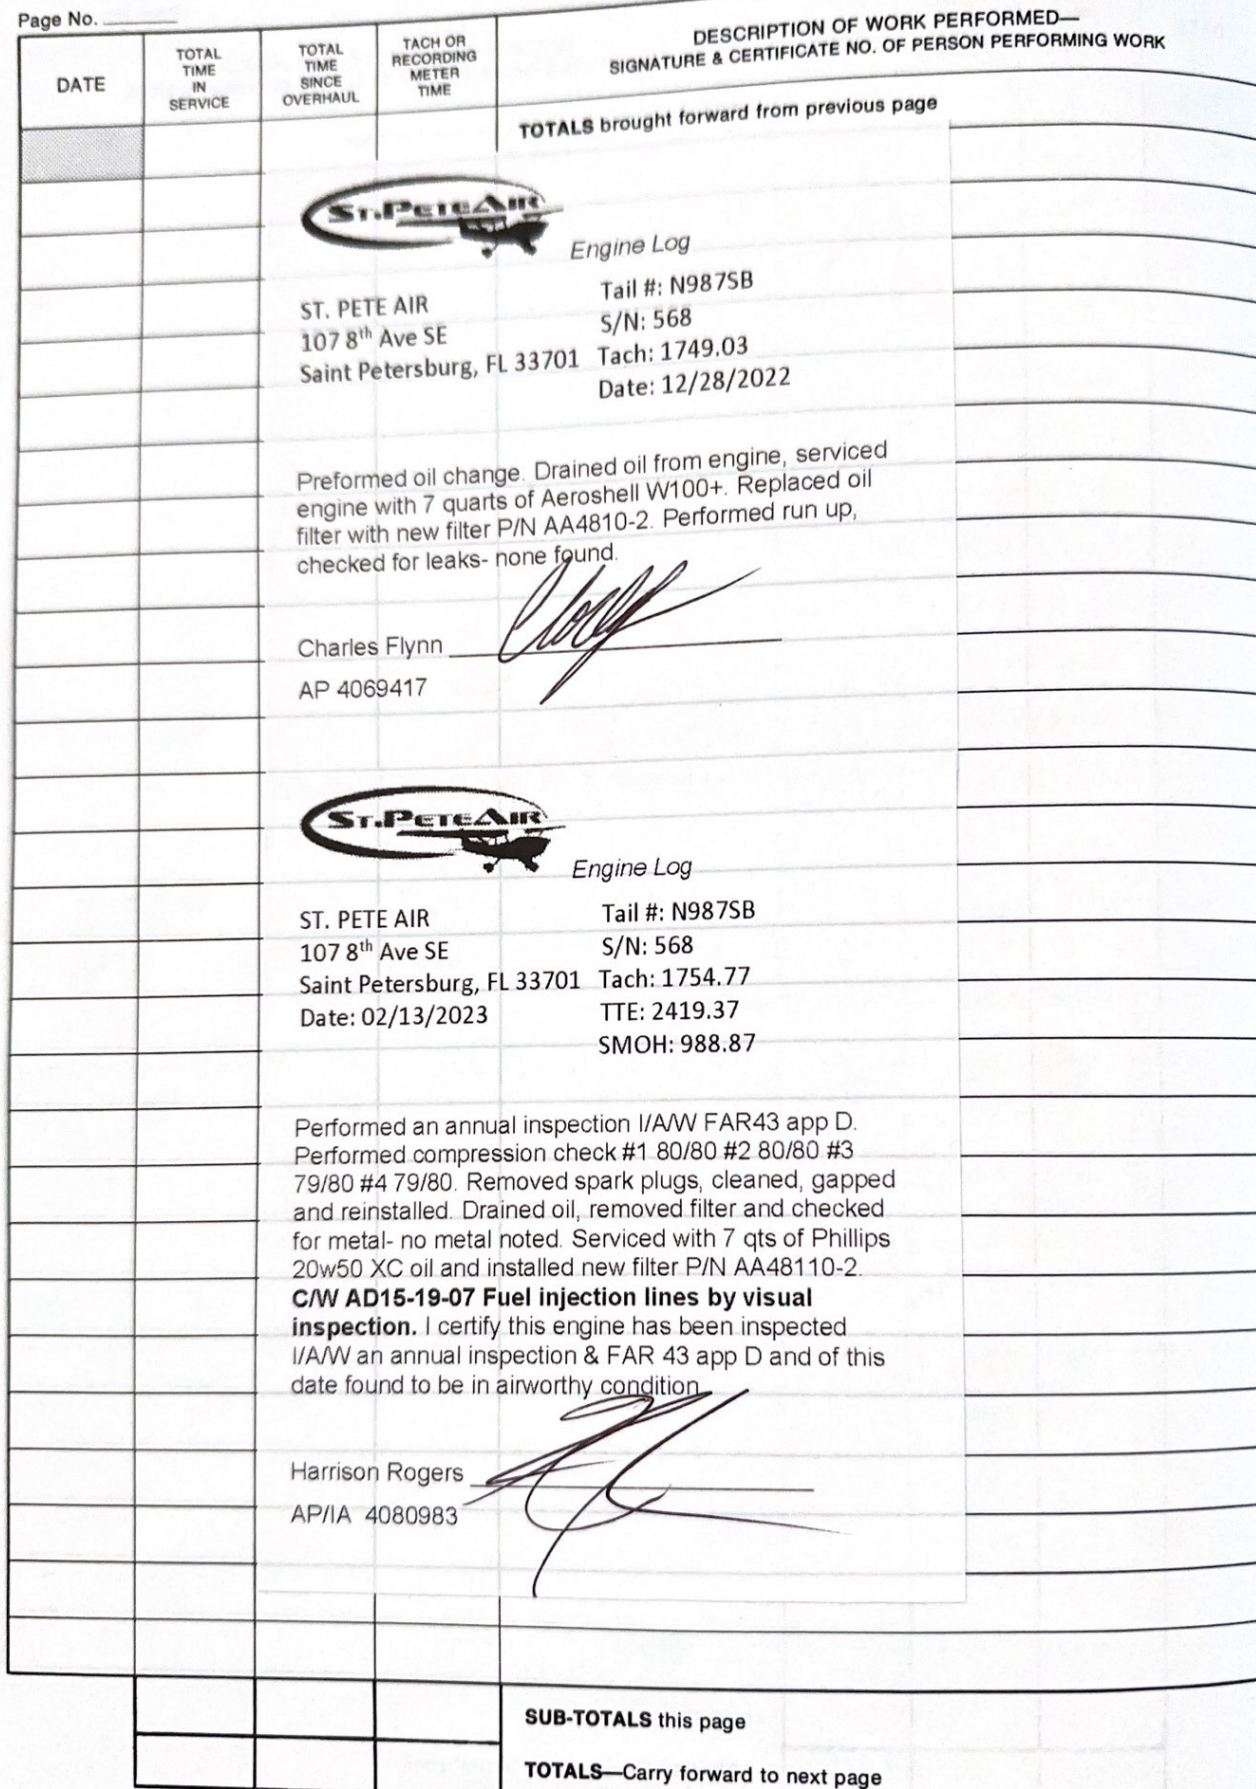 Page No.
DATE
TOTAL
TIME
IN
SERVICE
TOTAL
TIME
SINCE
OVERHAUL
TACH OR
RECORDING
METER
TIME
DESCRIPTION OF WORK PERFORMED—
SIGNATURE & CERTIFICATE NO. OF PERSON PERFORMING WORK
TOTALS brought forward from previous page
ST.PETEAIR
Engine Log
ST. PETE AIR
107 8th Ave SE
Saint Petersburg, FL 33701
Tail #: N987SB
S/N: 568
Tach: 1749.03
Date: 12/28/2022
Preformed oil change. Drained oil from engine, serviced
engine with 7 quarts of Aeroshell W100+. Replaced oil
filter with new filter P/N AA4810-2. Performed run up,
checked for leaks- none found.
Charles Flynn
AP 4069417
ST.PETEAIR
Engine Log
ST. PETE AIR
107 8th Ave SE
Saint Petersburg, FL 33701
Date: 02/13/2023
Tail #: N987SB
S/N: 568
Tach: 1754.77
TTE: 2419.37
SMOH: 988.87
Performed an annual inspection I/A/W FAR43 app D.
Performed compression check #1 80/80 #2 80/80 #3
79/80 #4 79/80. Removed spark plugs, cleaned, gapped
and reinstalled. Drained oil, removed filter and checked
for metal- no metal noted. Serviced with 7 qts of Phillips
20w50 XC oil and installed new filter P/N AA48110-2.
C/W AD15-19-07 Fuel injection lines by visual
inspection. I certify this engine has been inspected
I/A/W an annual inspection & FAR 43 app D and of this
date found to be in airworthy condition
Harrison Rogers
AP/IA 4080983
SUB-TOTALS this page
TOTALS—Carry forward to next page